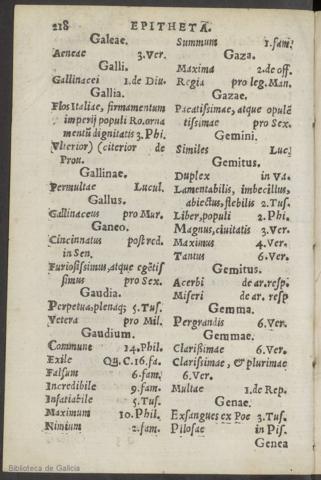 218 EPITHETA.
Galeae.
Aeneae 3.Ver.
Galli.
Gallinacei 1.de Diu.
Gallia.
Flos Italiae, firmamentum
imperij populi Ro.orna
mentū dignitatis 3.Phi.
Vlterior) (citerior de
Prou.
Gallinae.
Permultae Lucul.
Gallus.
Gallinaceus pro Mur.
Ganeo.
Cincinnatus post red.
in Sen.
Furiosissimus, atque egētis
simus pro Sex.
Gaudia.
Perpetua, plenaq; 5.Tus.
Vetera pro Mil.
Gaudium.
Commune 14.Phil.
Exile Qu. C.16.fa.
Falsum 6.fam.
Incredibile 9.fam.
Insatiabile 5.Tus.
Maximum 10.Phil.
Nimium 2.fam.
Summum 1.fam.
Gaza.
Maxima 2.de off.
Regia pro leg.Man.
Gazae.
Pacatissimae, atque opulē
tissimae pro Sex.
Gemini.
Similes Luc.
Gemitus.
Duplex in Va.
Lamentabilis, imbecillus,
abiectus, flebilis 2.Tus.
Liber, populi 2.Phi.
Magnus, ciuitatis 3.Ver.
Maximus 4.Ver.
Tantus 6.Ver.
Gemitus.
Acerbi de ar.resp.
Miseri de ar. resp
Gemma.
Pergrandis 6.Ver.
Gemmae.
Clarissimae 6.Ver.
Clarissimae, & plurimae
6.Ver.
Multae 1.de Rep.
Genae.
Exsangues ex Poe 3.Tus.
Pilosae in Pis.
Genea
Biblioteca de Galicia